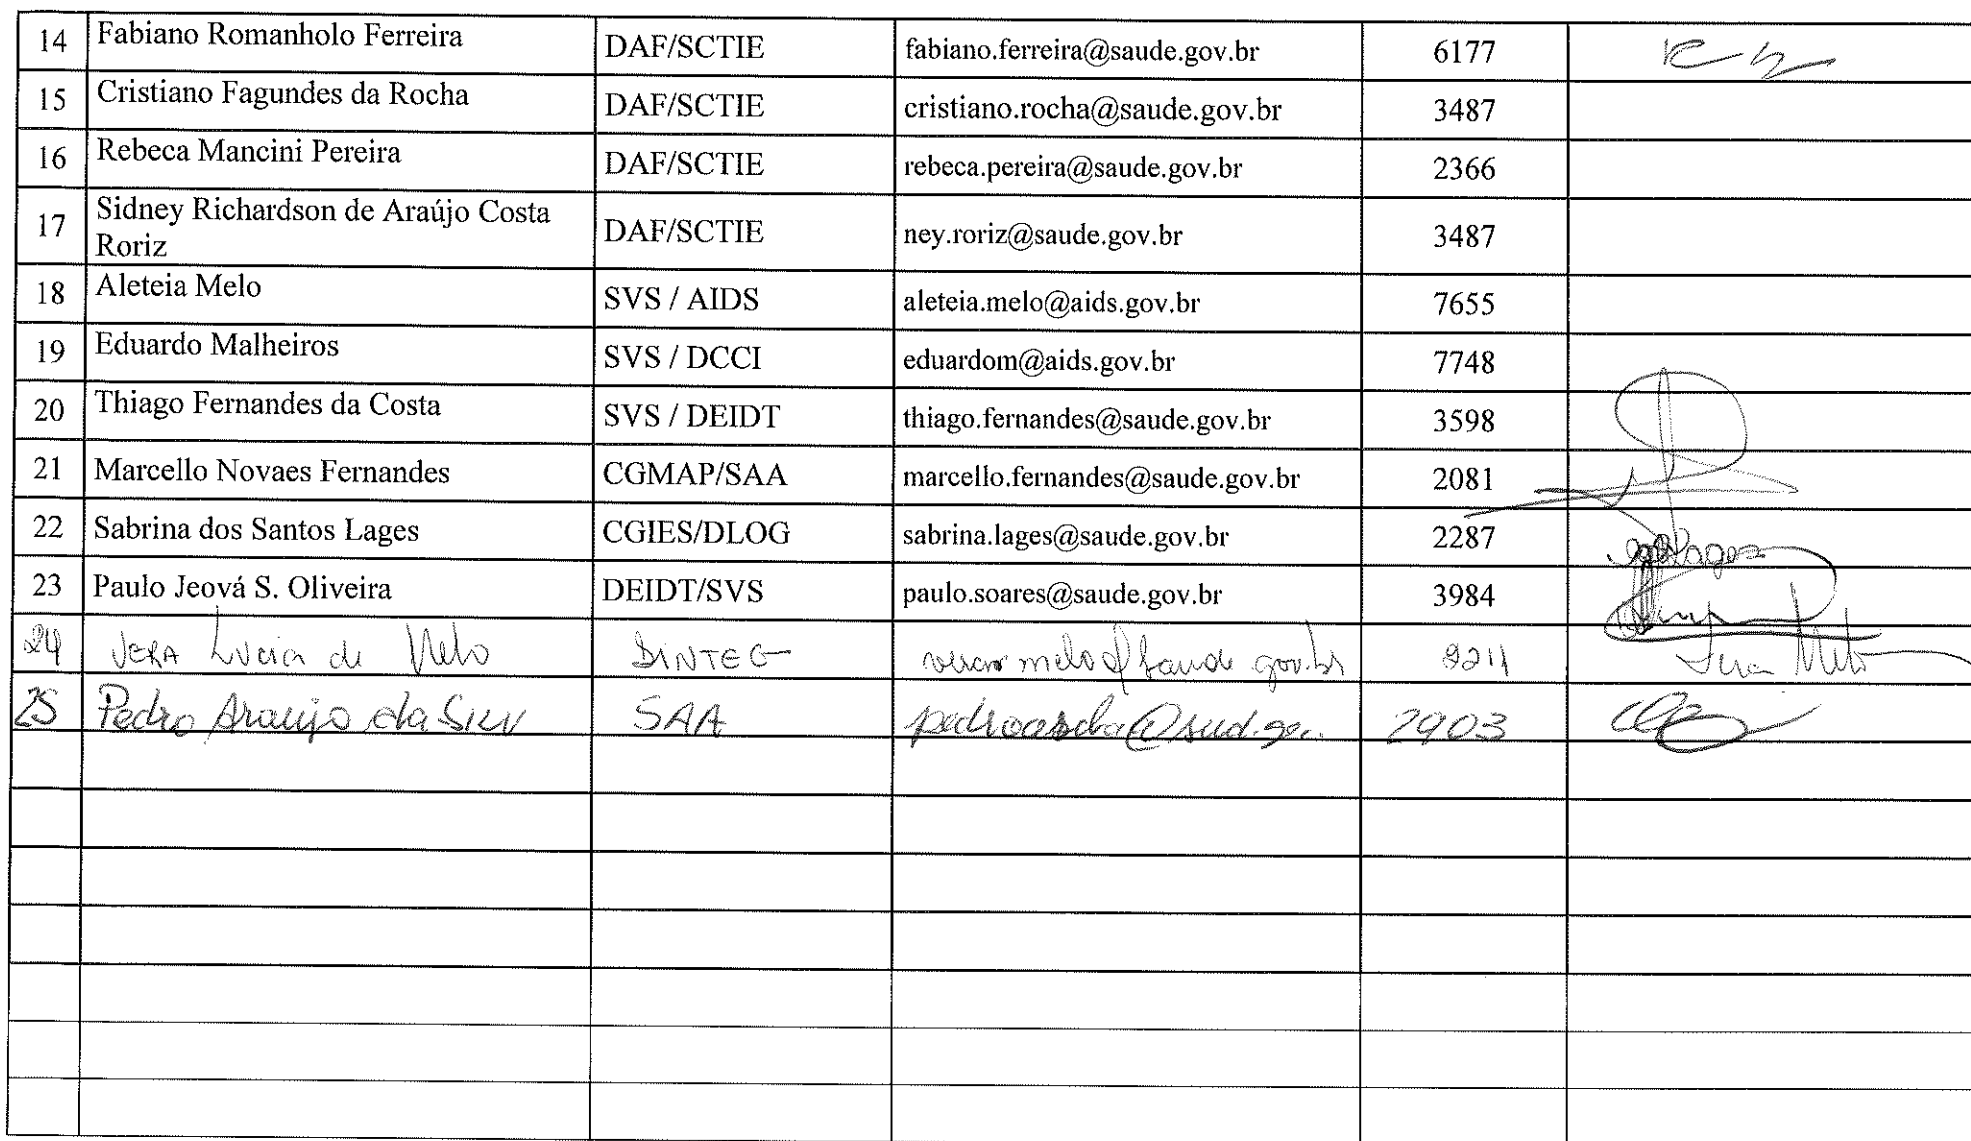 14 Fabiano Romanholo Ferreira DAF/SCTIE fabiano.ferreira@saude.gov.br 6177
15 Cristiano Fagundes da Rocha DAF/SCTIE cristiano.rocha@saude.gov.br 3487
16 Rebeca Mancini Pereira DAF/SCTIE rebeca.pereira@saude.gov.br 2366
17 Sidney Richardson de Araújo Costa
Roriz DAF/SCTIE ney.roriz@saude.gov.br 3487
18 Aleteia Melo SVS / AIDS aleteia.melo@aids.gov.br 7655
19 Eduardo Malheiros SVS / DCCI eduardom@aids.gov.br 7748
20 Thiago Fernandes da Costa SVS / DEIDT thiago.fernandes@saude.gov.br 3598
21 Marcello Novaes Fernandes CGMAP/SAA marcello.fernandes@saude.gov.br 2081
22 Sabrina dos Santos Lages CGIES/DLOG sabrina.lages@saude.gov.br 2287
23 Paulo Jeová S. Oliveira DEIDT/SVS paulo.soares@saude.gov.br 3984
24 VERA Lucia de Melo DINTEG Vera Melo
25 Pedro Araujo da Silv SAA 2903